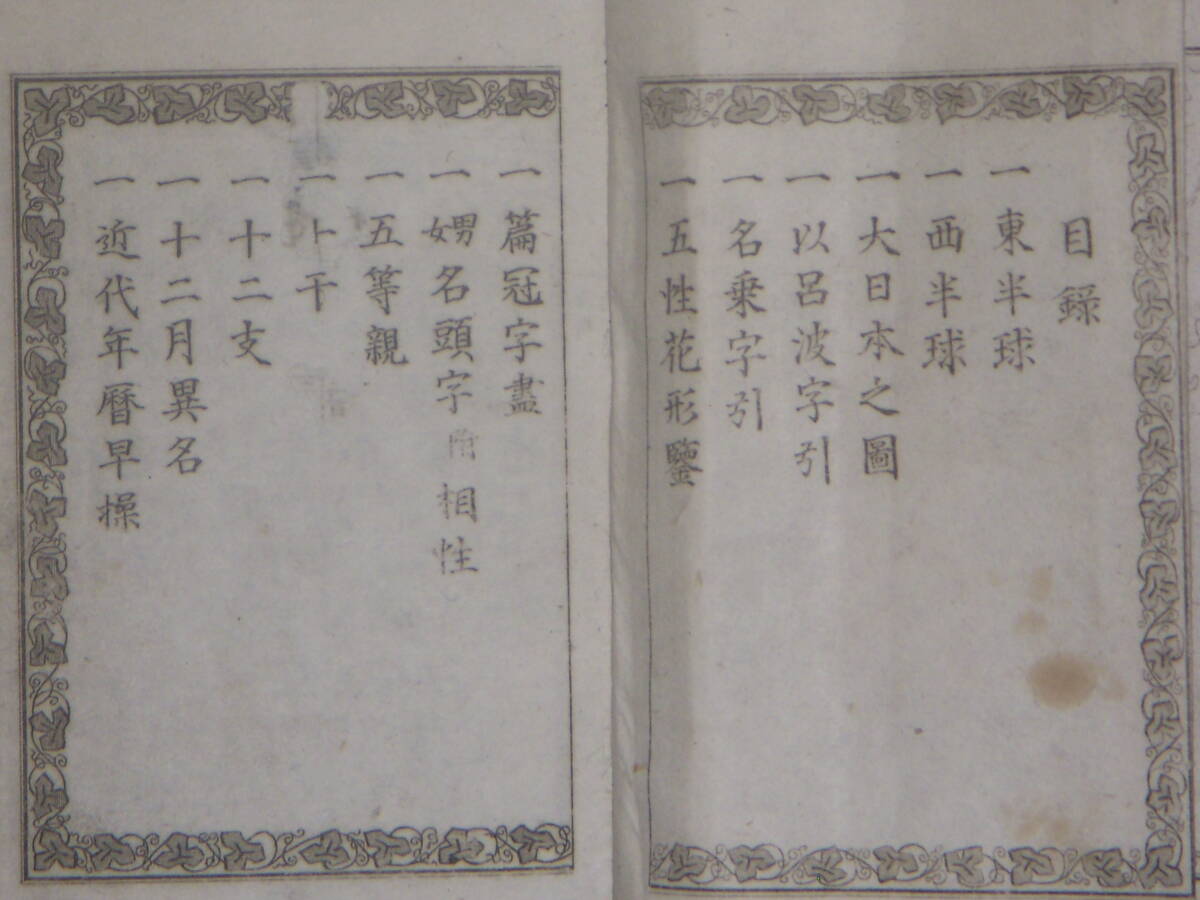 目録
一東半球
一西半球
一大日本之圖
一以呂波字引
一名乗字引
一五性花形鑒
一篇冠字盡
一娚名頭字附相性
一五等親
一十干
一十二支
一十二月異名
一近代年暦早操